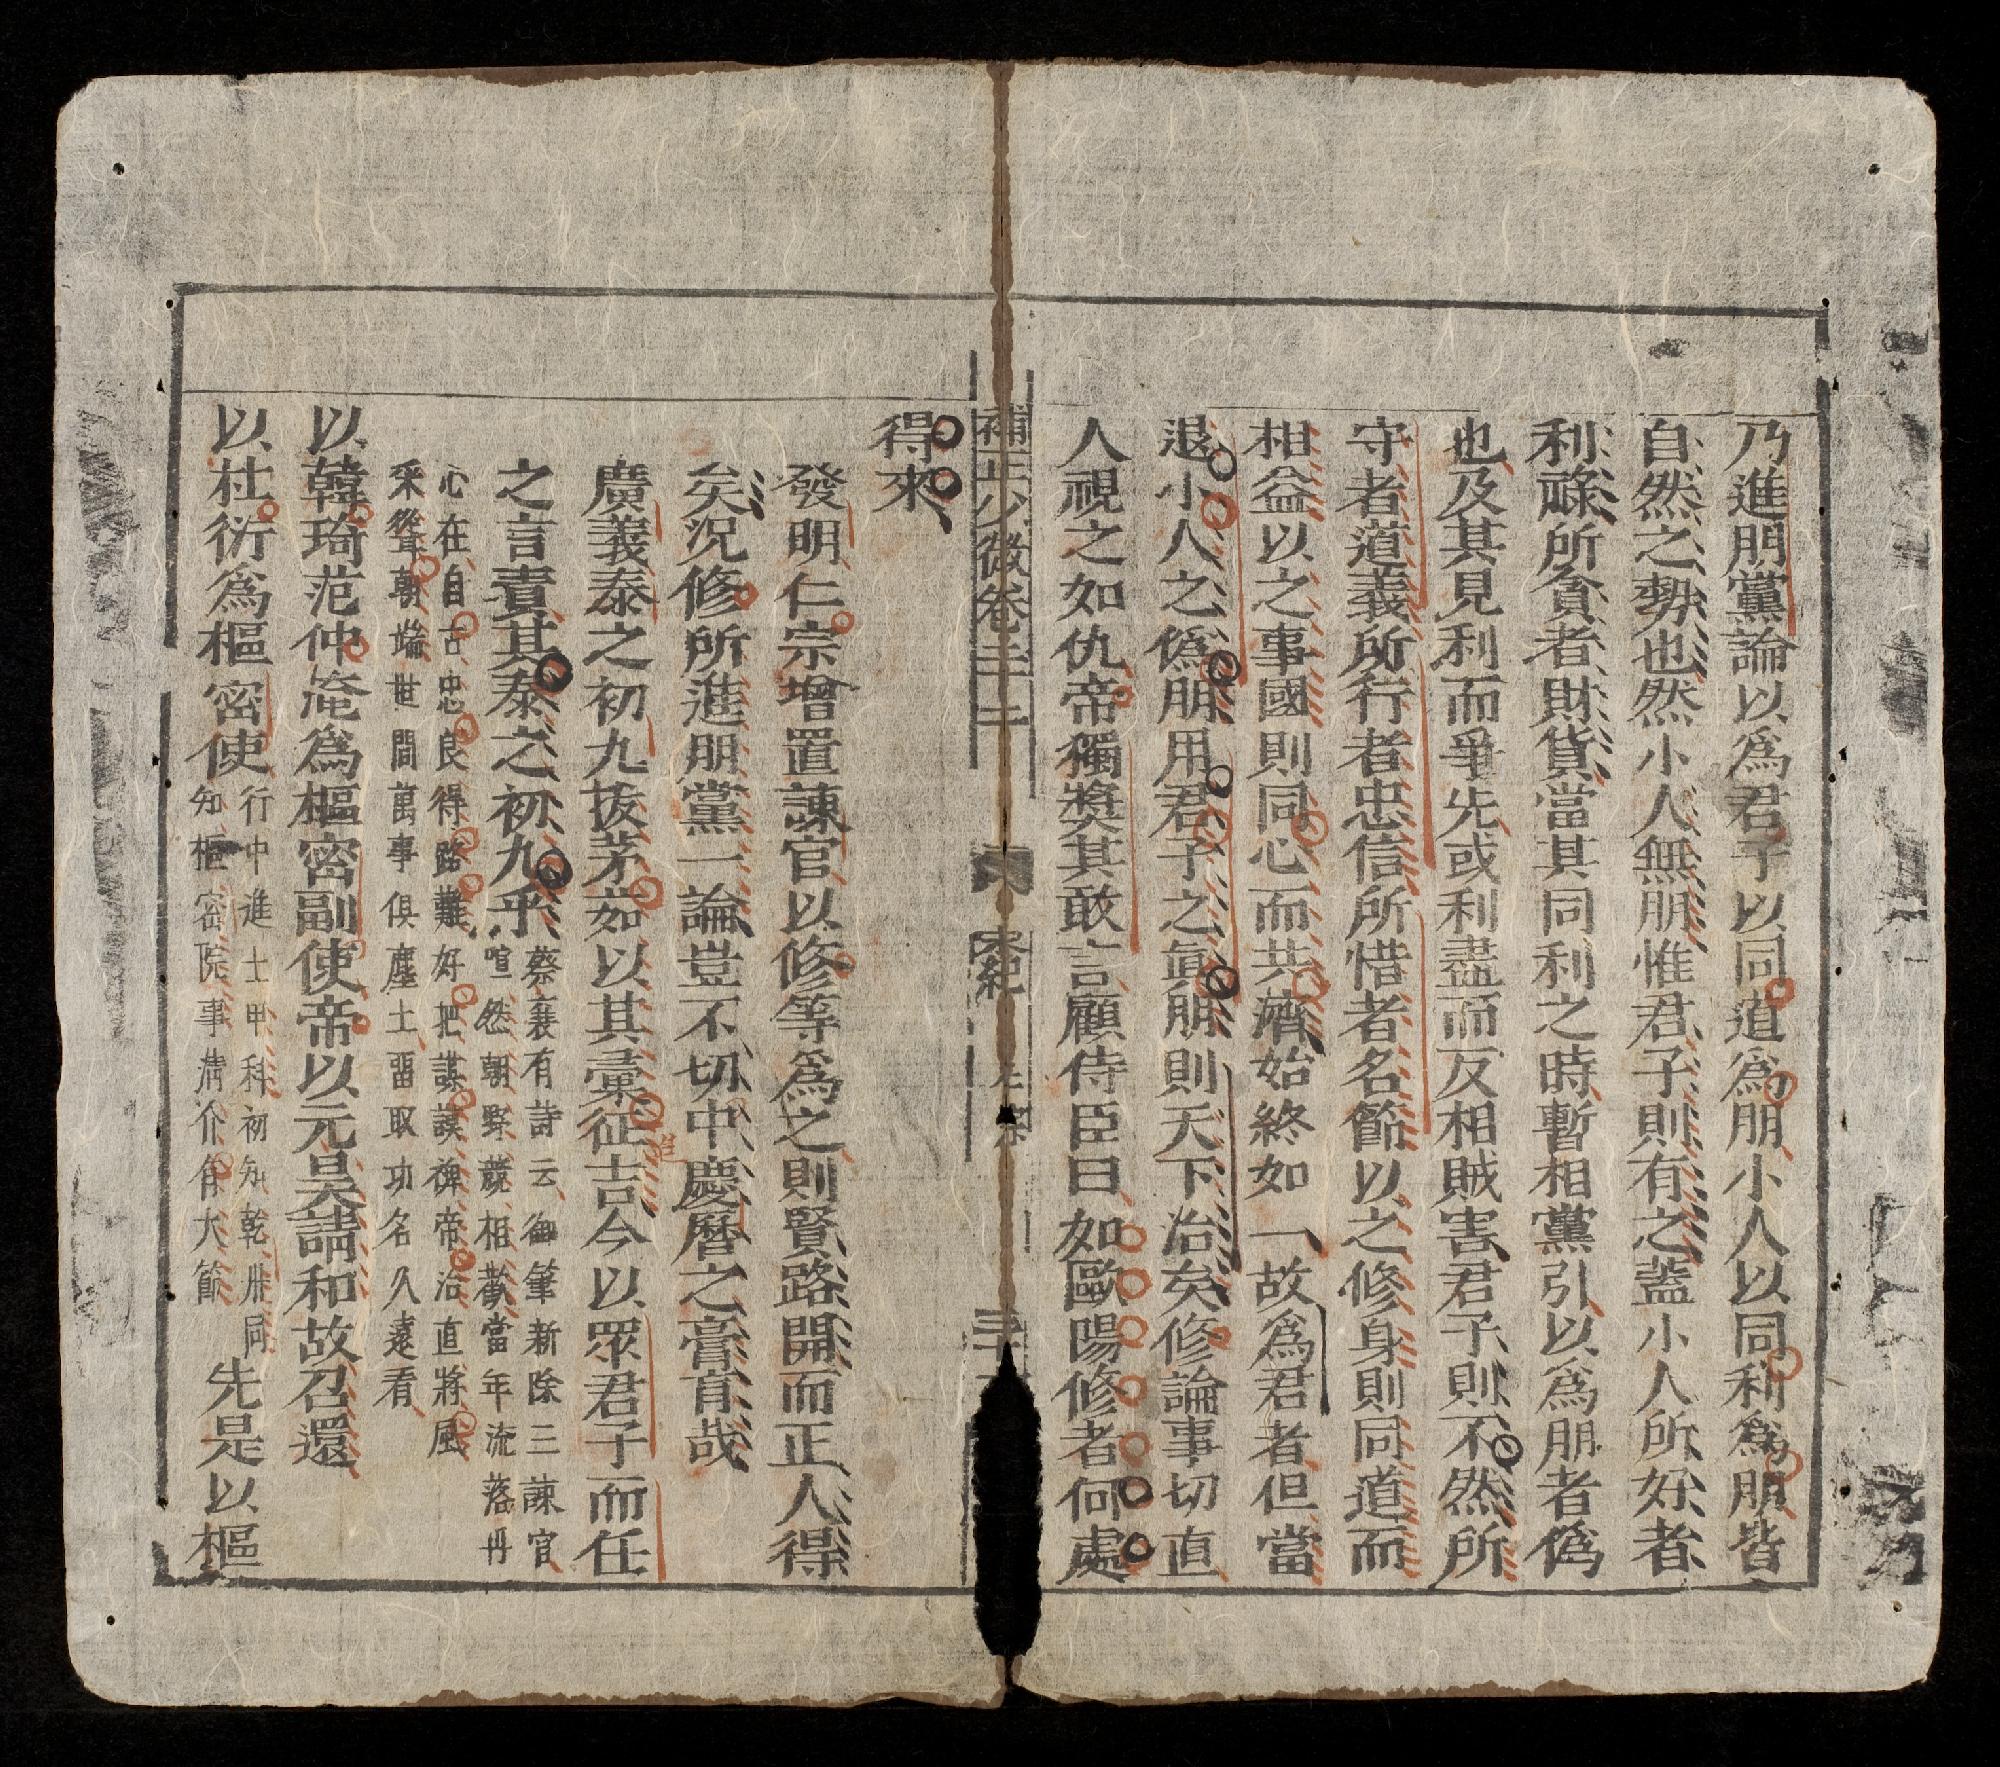 乃進朋黨論以為君子以同道為朋小人以同利為朋皆
自然之勢也然小人無朋惟君子則有之蓋小人所好者
利祿所貪者財貨當其同利之時暫相黨引以為朋者偽
也及其見利而爭先或利盡而反相賊害君子則不然所
守者道義所行者忠信所惜者名節以之修身則同道而
相益以之事國則同心而共濟始終如一故為君者但當
退小人之偽朋用君子之眞朋則天下治矣修論事切直
人視之如仇帝獨奬其敢言顧侍臣曰如歐陽修者何處
補正少微卷二十二
宋紀
得來
發明仁宗增置諫官以修等爲之則賢路開而正人得
矣況修所進朋黨一論豈不切中慶曆之膏肓哉
廣義泰之初九拔茅茹以其彙征吉今以眾君子而任
之言責其泰之初九乎
蔡襄有詩云御筆新除三諫官
喧然朝野競相歡當年流落丹
心在自古忠良得路難好把謀謨裨帝治直將風
采聳朝端世間萬事俱塵土留取功名久遠看
以韓琦范仲淹爲樞密副使帝以元昊請和故召還
以杜衍爲樞密使
行中進士甲科初知乾州同
知樞密院事清介有大節
先是以樞